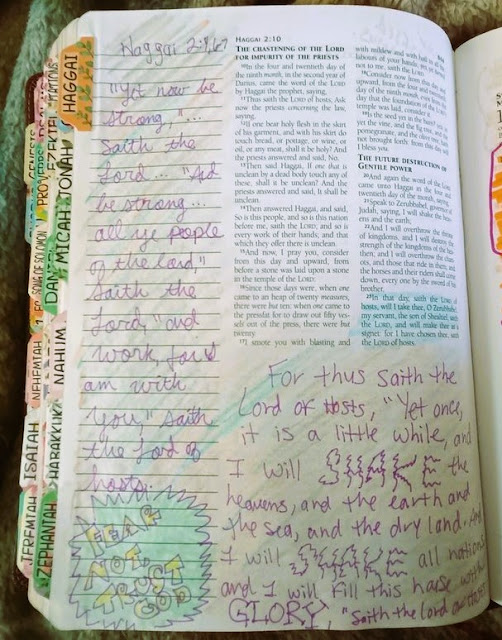 HAGGAI
EZEKIEL
PROVERBS
JONAH
MICAH
DAN
SONG OF SOLOMON
NAHUM
NEHEMIAH
HABAKKUK
ISAIAH
ZEPHANIAH
JEREMIAH
Haggai 2:4,6,7
"Yet now be
strong,"...
saith the
Lord... "And
be strong...
all ye people
of the Lord,"
saith the
Lord, and
work, for I
am with
you," saith
the Lord of
hosts.
FEAR
NOT,
TRUST
GOD
HAGGAI 2:10
THE CHASTENING OF THE LORD
FOR IMPURITY OF THE PRIESTS
10In the four and twentieth day of
the ninth month, in the second year of
Darius, came the word of the LORD
by Haggai the prophet, saying,
11Thus saith the LORD of hosts; Ask
now the priests concerning the law,
saying,
12If one bear holy flesh in the skirt
of his garment, and with his skirt do
touch bread, or pottage, or wine, or
oil, or any meat, shall it be holy? And
the priests answered and said, No.
13Then said Haggai, If one that is
unclean by a dead body touch any of
these, shall it be unclean? And the
priests answered and said, It shall be
unclean.
14Then answered Haggai, and said,
So is this people, and so is this nation
before me, saith the LORD; and so is
every work of their hands; and that
which they offer there is unclean.
15And now, I pray you, consider
from this day and upward, from
before a stone was laid upon a stone
in the temple of the LORD:
16Since those days were, when one
came to an heap of twenty measures,
there were but ten: when one came to
the pressfat for to draw out fifty ves-
sels out of the press, there were but
twenty.
17I smote you with blasting and
with mildew and with hail in all the
labours of your hands; yet ye turned
not to me, saith the LORD.
18Consider now from this day and
upward, from the four and twentieth
day of the ninth month, even from the
day that the foundation of the LORD's
temple was laid, consider it.
19Is the seed yet in the barn? yea, as
yet the vine, and the fig tree, and the
pomegranate, and the olive tree, hath
not brought forth: from this day will
I bless you.
THE FUTURE DESTRUCTION OF
GENTILE POWER
20And again the word of the LORD
came unto Haggai in the four and
twentieth day of the month, saying,
21Speak to Zerubbabel, governor of
Judah, saying, I will shake the heav-
ens and the earth;
22And I will overthrow the throne
of kingdoms, and I will destroy the
strength of the kingdoms of the hea-
then; and I will overthrow the chari-
ots, and those that ride in them; and
the horses and their riders shall come
down, every one by the sword of his
brother.
23In that day, saith the LORD of
hosts, will I take thee, O Zerubbabel,
my servant, the son of Shealtiel, saith
the LORD, and will make thee as a
signet: for I have chosen thee, saith
the LORD of hosts.
For thus saith the
Lord of Hosts, "Yet once,
it is a little while, and
I will SHAKE the
heavens, and the earth and
the sea, and the dry land. And
I will SHAKE all nations
and I will fill this house with
GLORY, "saith the Lord of hosts.